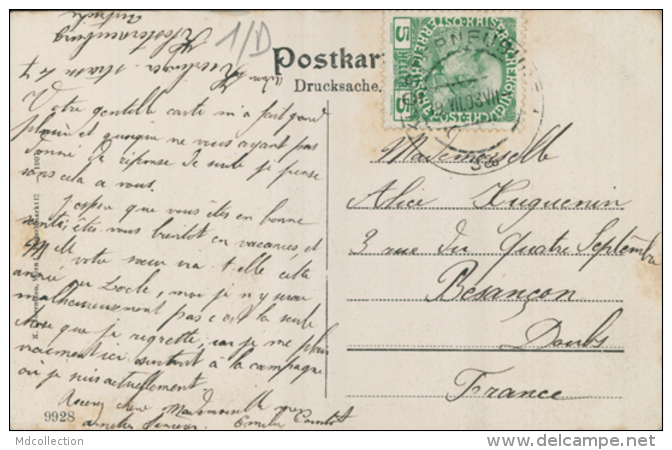 1/D
Postkar
Drucksache.
5
5
Klosterneuburg
Votre gentille carte m'a fait grand
plaisir et quoique ne vous ayant pas
donné de réponse je pense
sans cela a vous.
J'espère que vous êtes en bonne
santé; êtes vous bientôt en vacances, et
Mlle votre sœur va t-elle cette
année au Locle, moi je n'y serai
malheureusement pas c'est la seule
chose que je regrette, car je me plais
vraiment ici surtout à la campagne
ou je suis actuellement.
Recevez chère Mademoiselle mes
amitiés sincères Emilie
Mademoiselle
Alice Huguenin
3 rue du Quatre Septembre
Besançon
Doubs
France
9928
Mdcollection
www.delcampe.net